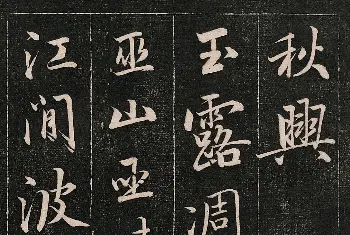 秋興
玉露凋
巫山巫
江間波